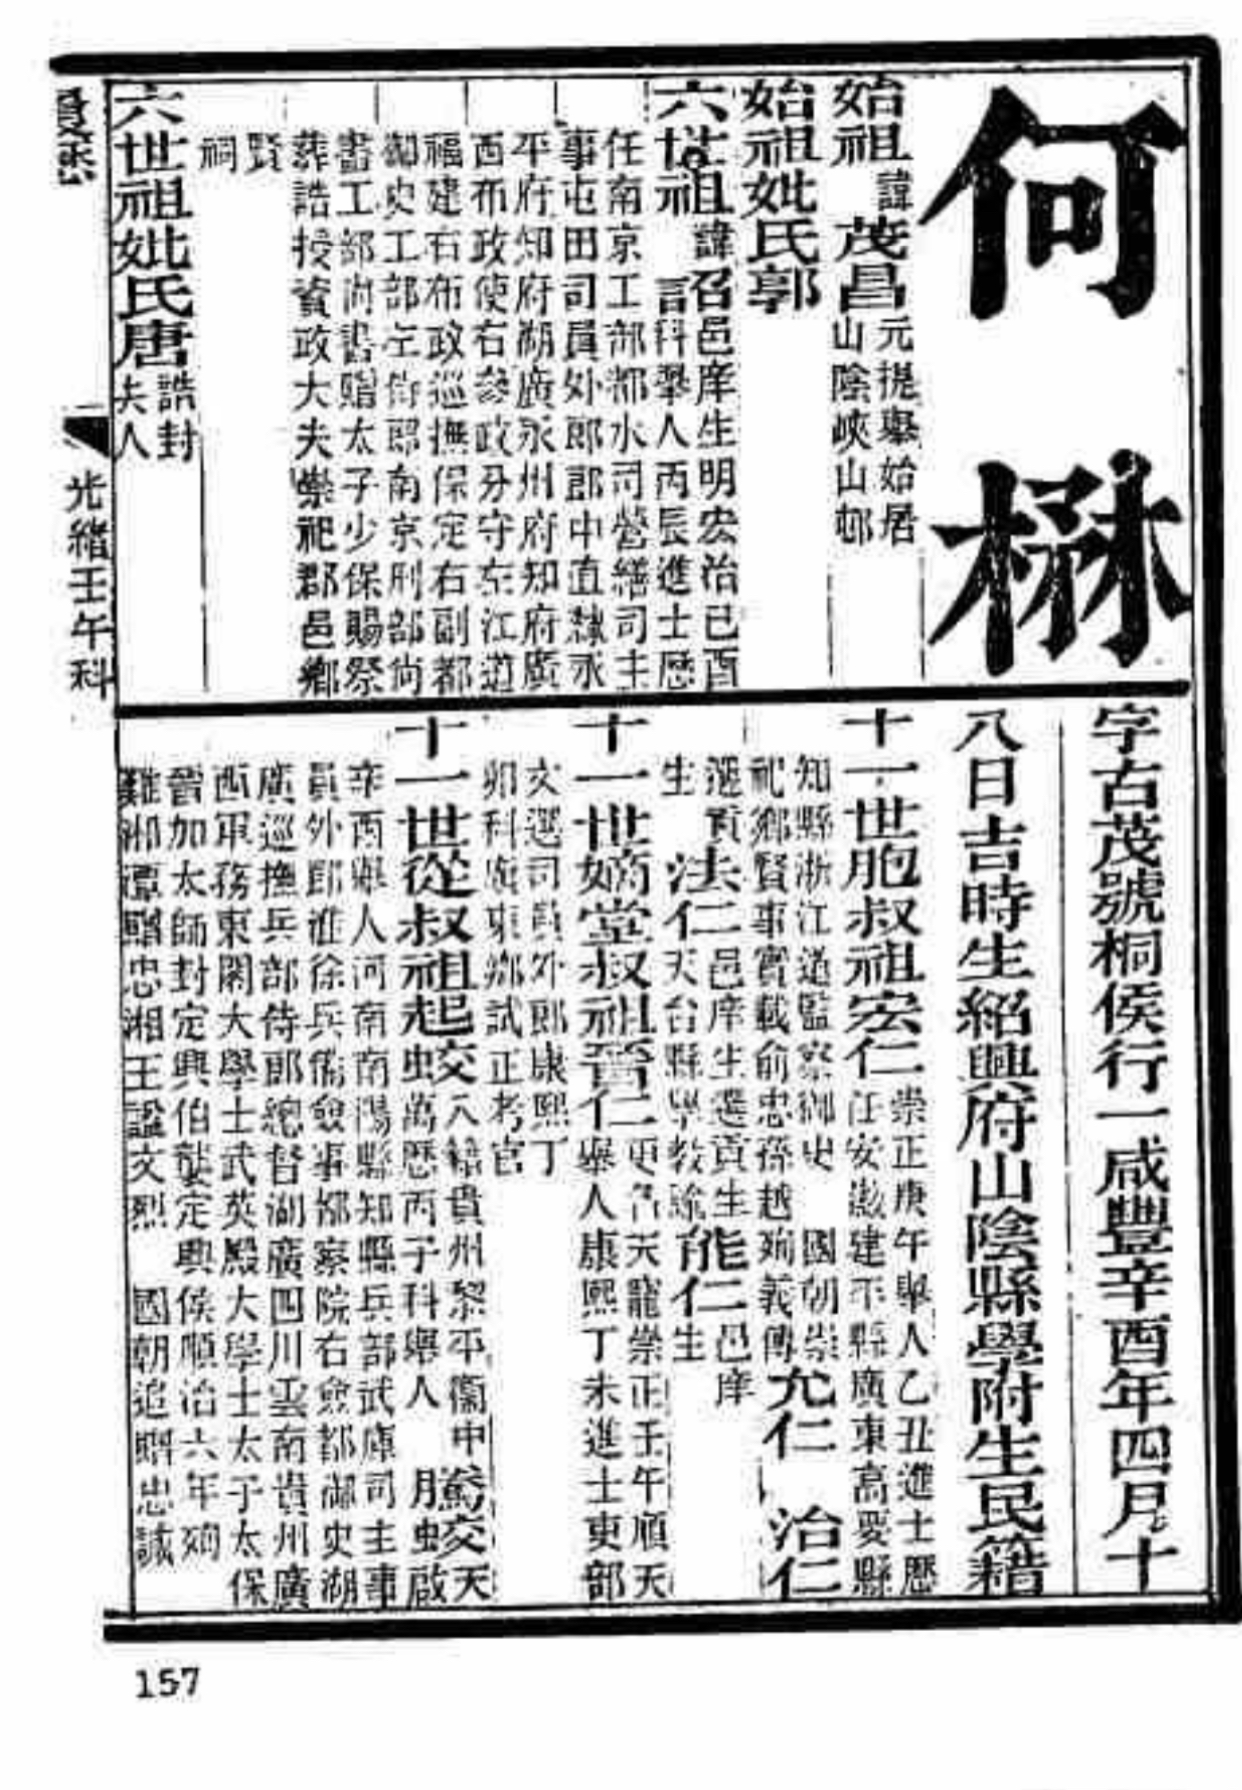 何楙
字古茂號桐侯行一咸豐辛酉年四月十
八日吉時生紹興府山陰縣學附生民籍
始祖諱茂昌元提舉始居
山陰峽山邨
始祖妣氏郭
六世祖諱詔邑庠生明宏治己酉
科舉人丙辰進士歷
任南京工部都水司營繕司主
事屯田司員外郎郎中直隸永
平府知府湖廣永州府知府廣
西布政使右參政分守左江道
福建右布政巡撫保定右副都
御史工部左侍郎南京刑部尚
書工部尚書贈太子少保賜祭
葬誥授資政大夫崇祀郡邑鄉
賢
祠
六世祖妣氏唐誥封
夫人
十一世胞叔祖宏仁崇正庚午舉人乙丑進士歷
任安徽建平縣廣東高要縣
知縣浙江道監察御史 國朝崇
祀鄉賢事實載俞忠孫越殉義傳允仁 治仁
選貢
生 法仁邑庠生選貢生
天台縣學教諭能仁邑庠
生
十一世嫡堂叔祖晉仁更名天寵崇正壬午順天
舉人康熙丁未進士吏部
文選司員外郎康熙丁
卯科廣東鄉試正考官
十一世從叔祖起蛟入籍貴州黎平衞中
萬歷丙子科舉人 騰蛟天
啟
辛酉舉人河南南陽縣知縣兵部武庫司主事
員外郎淮徐兵備僉事都察院右僉都御史湖
廣巡撫兵部侍郎總督湖廣四川雲南貴州廣
西軍務東閣大學士武英殿大學士太子太保
晉加太師封定興伯襲定興侯順治六年殉
難湘潭贈忠湘王諡文烈 國朝追贈忠誠
光緒壬午科
157